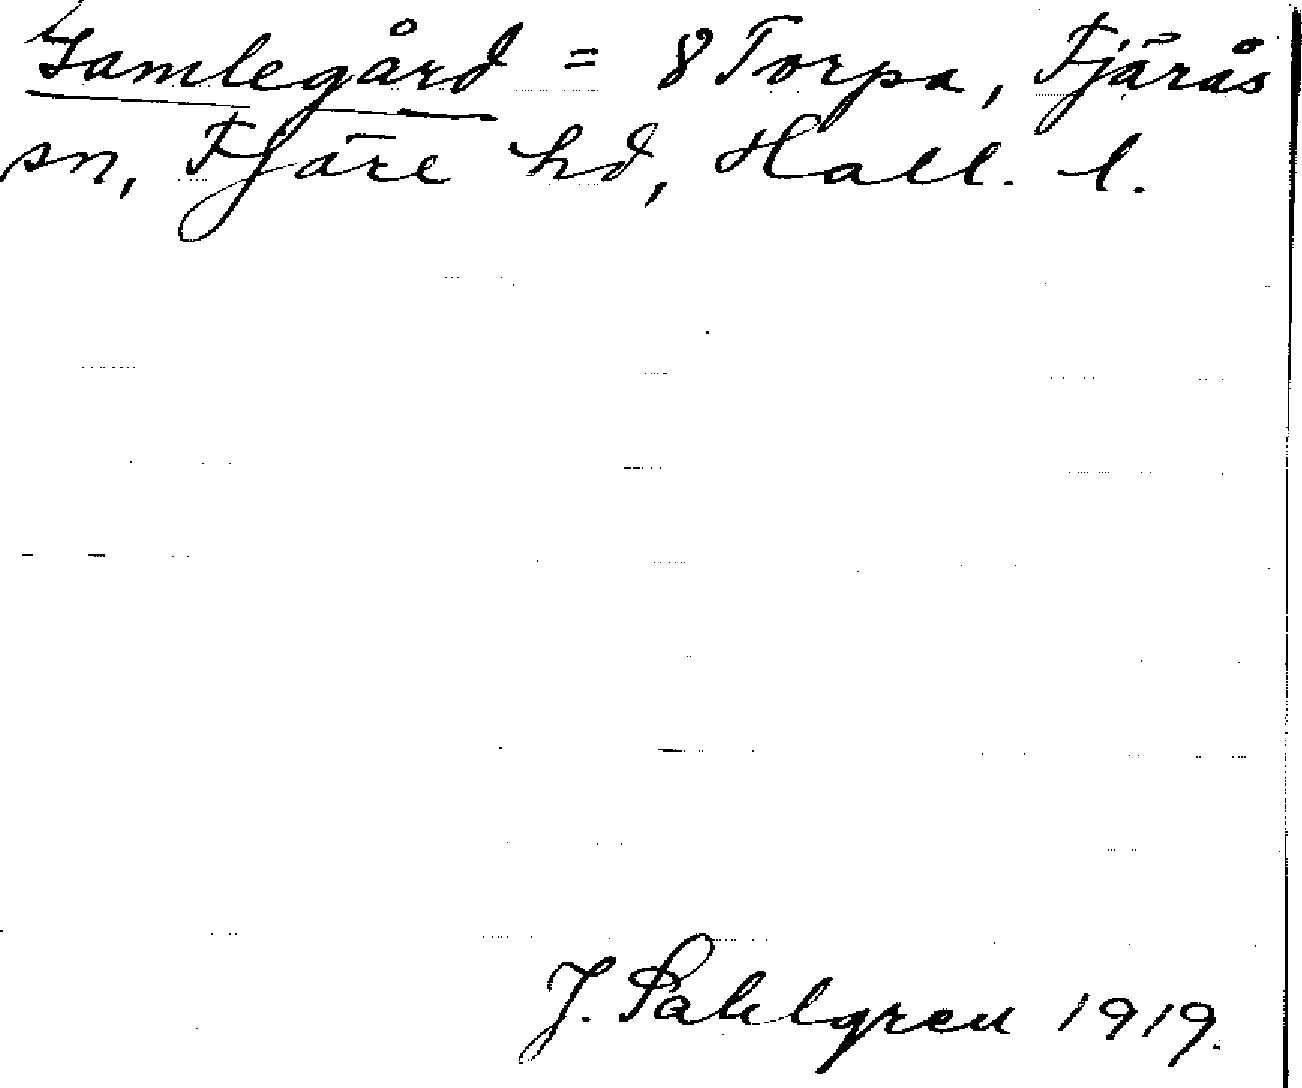 Gamlegård = 8 Torpa, Fjärås
sn, Fjäre hd, Hall. l.
J. Sahlgren 1919.